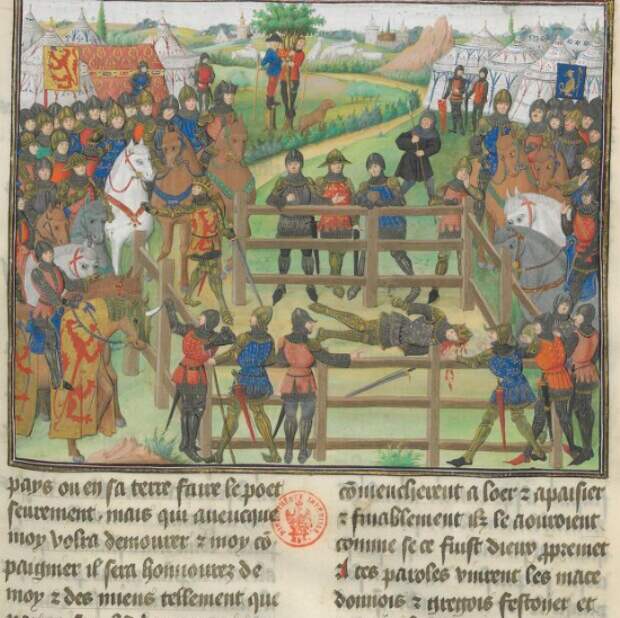 pays ou en sa terre faire le poet
seurement. mais qui auecque
moy volra demourer ⁊ moy cō
paignier il sera honnourez de
moy ⁊ des miens tellement que
cōmencherent a loer ⁊ apaisier
⁊ finablement ilz le aouroient
comme se ce fuist dieux ꝓpremēt
A ces paroles vinrent les mace
donnois ⁊ gregois festoyer et